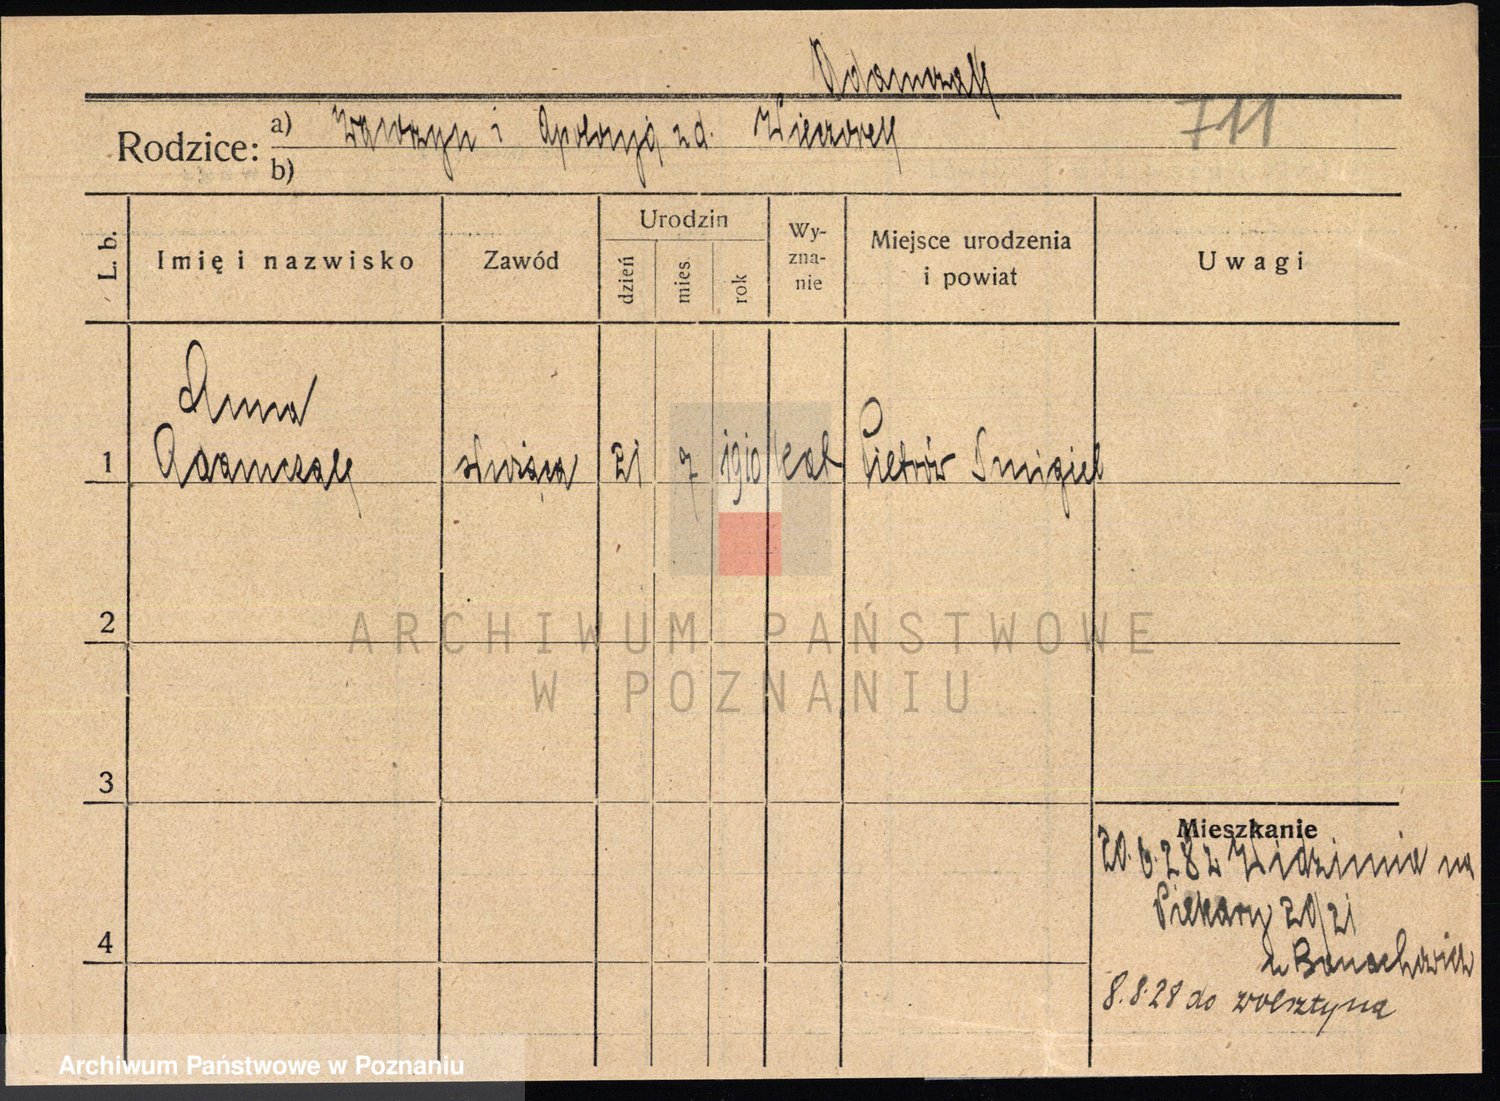 Adamczak
711
Rodzice: a) Wawrzyn i Apolonja zd. Wieczorek
b)
L. b. Imię i nazwisko Zawód Urodzin dzień mies. rok Wy-zna-nie Miejsce urodzenia i powiat Uwagi
Anna
1 Adamczak służąca 21 7 1910 kat Piotrów Śmigiel
2
ARCHIWUM PAŃSTWOWE
W POZNANIU
3
Mieszkanie
20.6.28 z Widzimia na
Piekary 20/21
4
u Banachowicz
8.8.28 do Wolsztyna
Archiwum Państwowe w Poznaniu